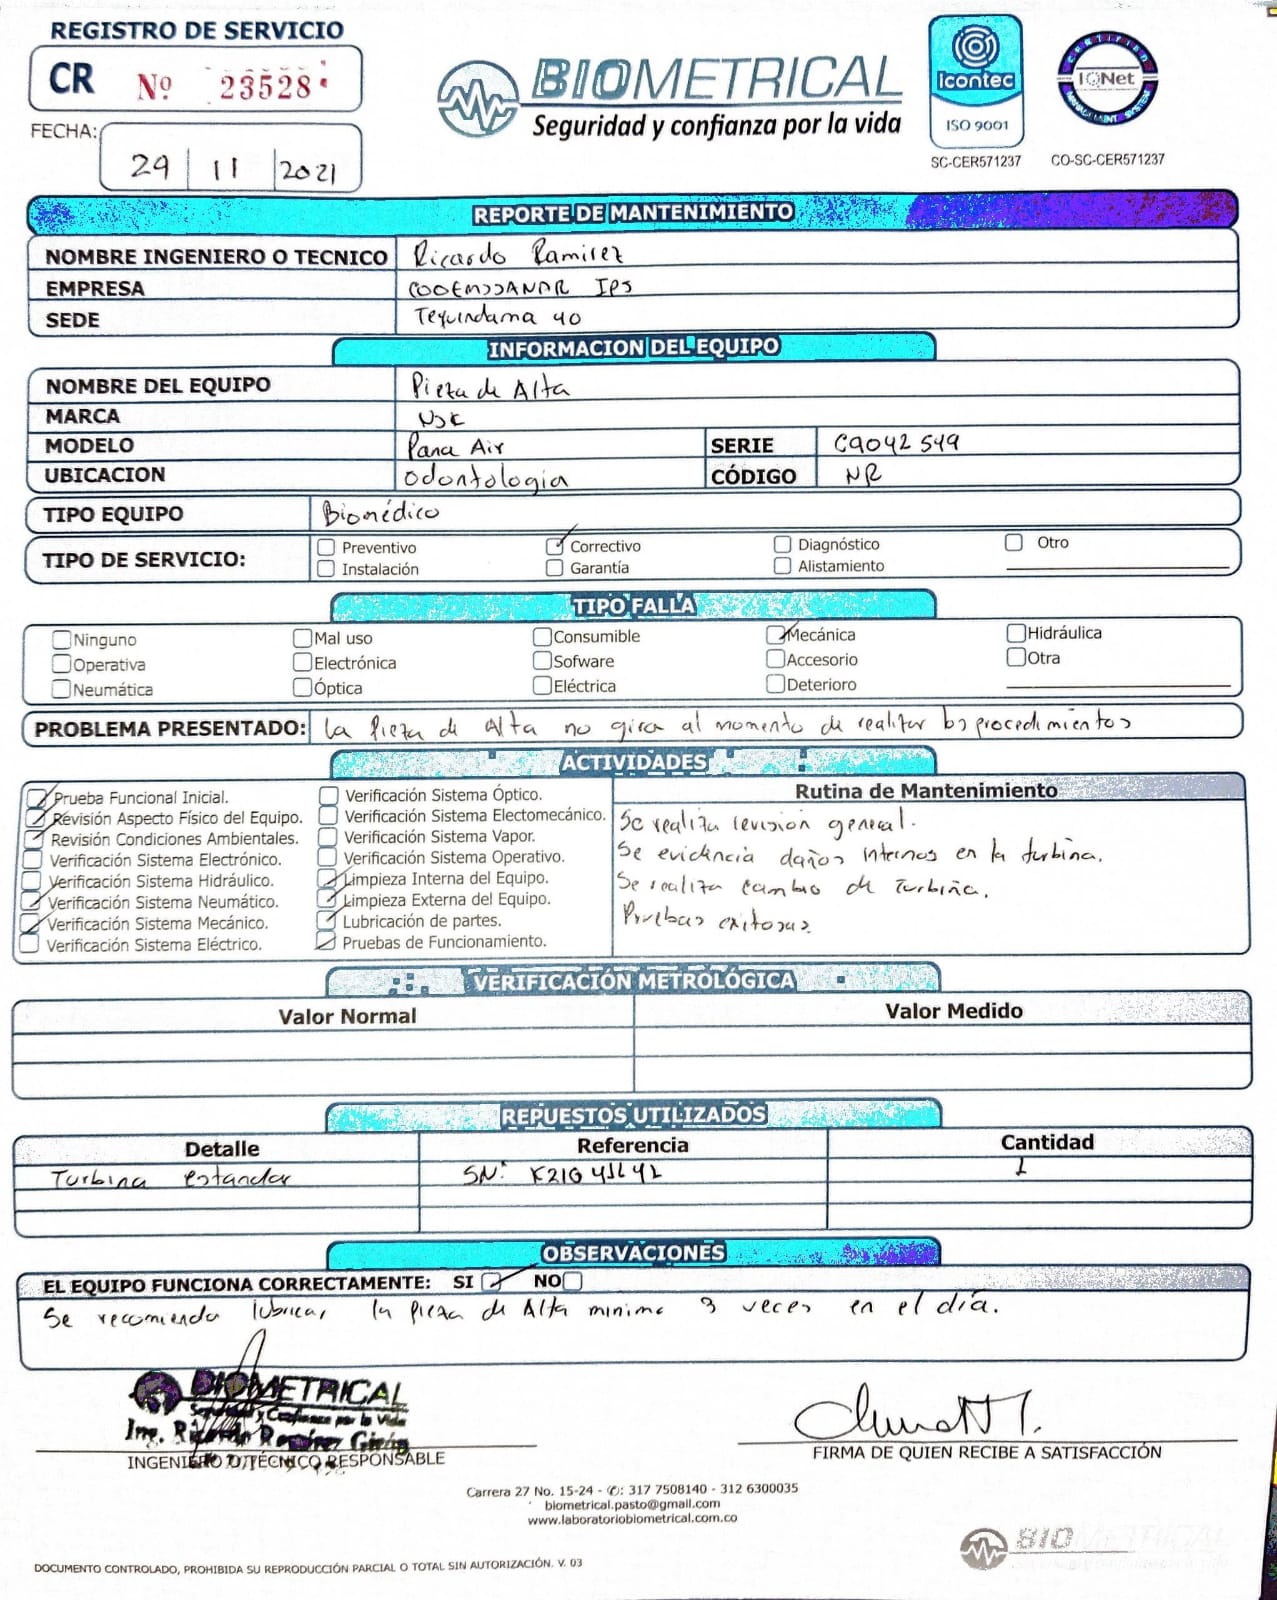 REGISTRO DE SERVICIO
CR Nº 23528
FECHA: 29 | 11 | 2021
BIOMETRICAL
Seguridad y confianza por la vida
icontec
ISO 9001
SC-CER571237
CERTIFIED
IQNet
MANAGEMENT SYSTEM
CO-SC-CER571237
REPORTE DE MANTENIMIENTO
NOMBRE INGENIERO O TECNICO Ricardo Ramirez
EMPRESA COOEMSSANAR IPS
SEDE Tequendama 40
INFORMACION DEL EQUIPO
NOMBRE DEL EQUIPO Pieza de Alta
MARCA NSK
MODELO Pana Air SERIE C9042549
UBICACION Odontologia CÓDIGO NR
TIPO EQUIPO Biomédico
TIPO DE SERVICIO: Preventivo Correctivo Diagnóstico Otro
Instalación Garantía Alistamiento
TIPO FALLA
Ninguno Mal uso Consumible Mecánica Hidráulica
Operativa Electrónica Sofware Accesorio Otra
Neumática Óptica Eléctrica Deterioro
PROBLEMA PRESENTADO: La Pieza de Alta no gira al momento de realizar los procedimientos
ACTIVIDADES
Prueba Funcional Inicial.
Revisión Aspecto Físico del Equipo.
Revisión Condiciones Ambientales.
Verificación Sistema Electrónico.
Verificación Sistema Hidráulico.
Verificación Sistema Neumático.
Verificación Sistema Mecánico.
Verificación Sistema Eléctrico.
Verificación Sistema Óptico.
Verificación Sistema Electomecánico.
Verificación Sistema Vapor.
Verificación Sistema Operativo.
Limpieza Interna del Equipo.
Limpieza Externa del Equipo.
Lubricación de partes.
Pruebas de Funcionamiento.
Rutina de Mantenimiento
Se realiza revision general.
Se evidencia daños internos en la turbina.
Se realiza cambio de Turbina.
Pruebas exitosas.
VERIFICACIÓN METROLÓGICA
Valor Normal Valor Medido
REPUESTOS UTILIZADOS
Detalle Referencia Cantidad
Turbina estandar SN: 1
OBSERVACIONES
EL EQUIPO FUNCIONA CORRECTAMENTE: SI NO
Se recomienda lubricar la pieza de Alta minimo 3 veces en el día.
BIOMETRICAL
Seguridad y Confianza por la vida
Ing. Ricardo Ramírez Girón
INGENIERO O TÉCNICO RESPONSABLE
FIRMA DE QUIEN RECIBE A SATISFACCIÓN
Carrera 27 No. 15-24 - ✆: 317 7508140 - 312 6300035
biometrical.pasto@gmail.com
www.laboratoriobiometrical.com.co
BIOMETRICAL
DOCUMENTO CONTROLADO, PROHIBIDA SU REPRODUCCIÓN PARCIAL O TOTAL SIN AUTORIZACIÓN. V. 03